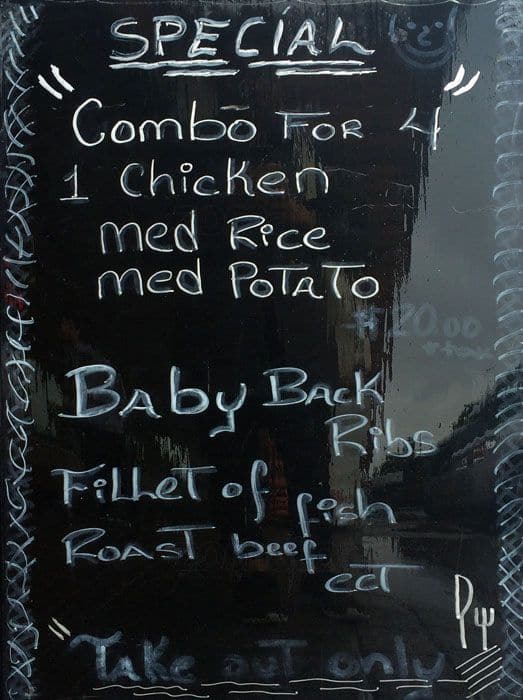 SPECIAL
" Combo FOR 4 "
1 Chicken
med Rice
med POTATO
$20.00
+ tax
BAby BACK
Ribs
FilleT of fish
ROAST beef
ecT
" Take out only